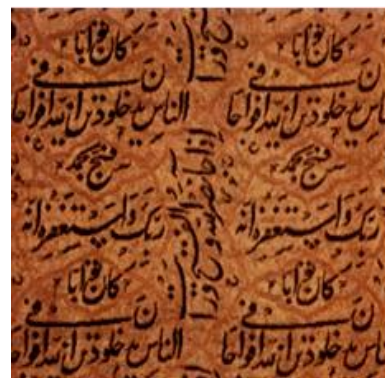 كان توابا
ن في
الناس يدخلو دين الله افواجا
فسبح بحمد
ربك واستغفره انه
كان توابا
ن في
الناس يدخلو دين الله افواجا
اذا جاء نصر الله والفتح ورايت
كان توابا
ن في
الناس يدخلو دين الله افواجا
فسبح بحمد
ربك واستغفره انه
كان توابا
ن في
الناس يدخلو دين الله افواجا